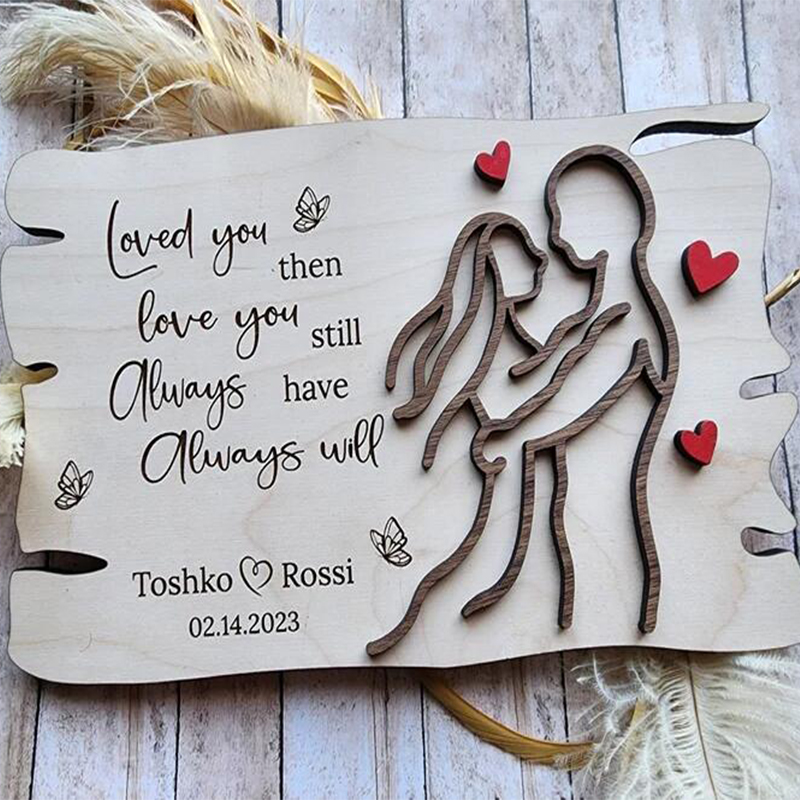 Loved you then
love you still
Always have
Always will
Toshko ♡ Rossi
02.14.2023